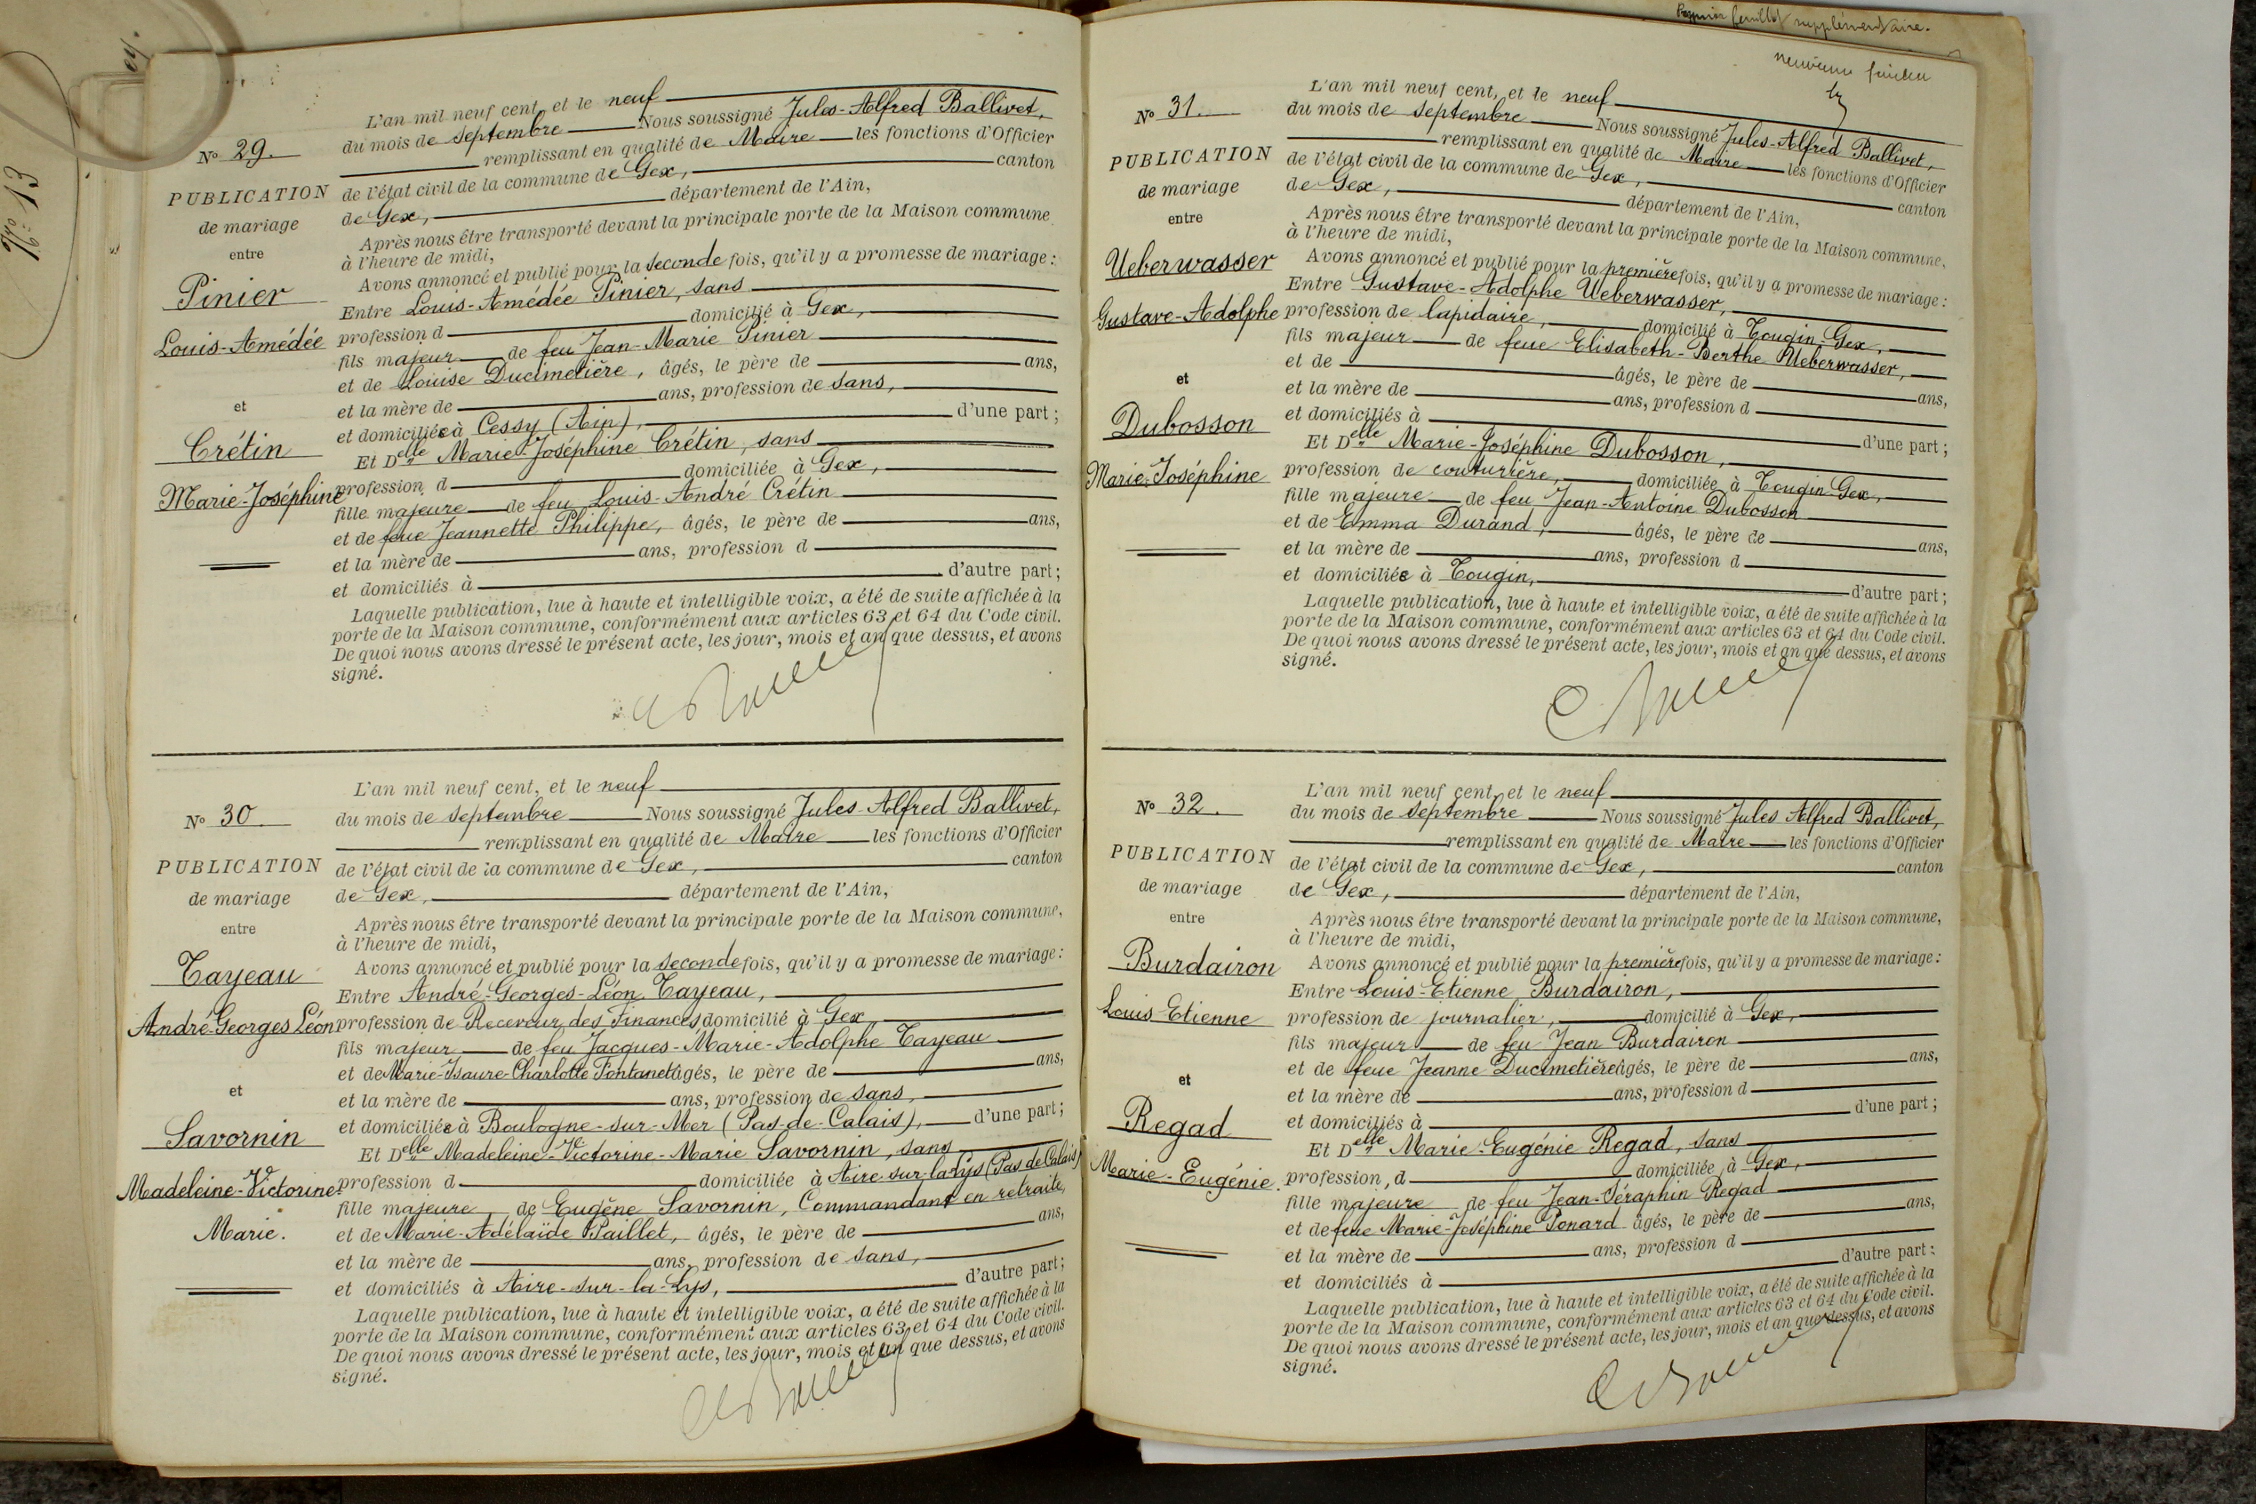 Nº 13
Premier feuillet supplémentaire.
Nº 29.
PUBLICATION
de mariage
entre
Pinier
Louis-Amédée
et
Crétin
Marie-Joséphine
L'an mil neuf cent, et le neuf
du mois de septembre Nous soussigné Jules-Alfred Ballivet,
remplissant en qualité de Maire les fonctions d'Officier
de l'état civil de la commune de Gex, canton
de Gex, département de l'Ain,
Après nous être transporté devant la principale porte de la Maison commune
à l'heure de midi,
Avons annoncé et publié pour la seconde fois, qu'il y a promesse de mariage :
Entre Louis-Amédée Pinier, sans
profession d domicilié à Gex,
fils majeur de feu Jean-Marie Pinier
et de Louise Ducimetière, âgés, le père de ans,
et la mère de ans, profession de sans,
et domiciliée à Cessy (Ain), d'une part ;
Et Delle Marie-Joséphine Crétin, sans
profession d domiciliée à Gex,
fille majeure de feu Louis-André Crétin
et de feue Jeannette Philippe, âgés, le père de ans,
et la mère de ans, profession d
et domiciliés à d'autre part ;
Laquelle publication, lue à haute et intelligible voix, a été de suite affichée à la
porte de la Maison commune, conformément aux articles 63 et 64 du Code civil.
De quoi nous avons dressé le présent acte, les jour, mois et an que dessus, et avons
signé.
Nº 30
PUBLICATION
de mariage
entre
Tayeau
André-Georges Léon
et
Savornin
Madeleine-Victorine-
Marie.
L'an mil neuf cent, et le neuf
du mois de septembre Nous soussigné Jules-Alfred Ballivet,
remplissant en qualité de Maire les fonctions d'Officier
de l'état civil de la commune de Gex, canton
de Gex, département de l'Ain,
Après nous être transporté devant la principale porte de la Maison commune,
à l'heure de midi,
Avons annoncé et publié pour la seconde fois, qu'il y a promesse de mariage :
Entre André-Georges-Léon Tayeau,
profession de Receveur des Finances domicilié à Gex
fils majeur de feu Jacques-Marie-Adolphe Tayeau
et de Marie-Isaure-Charlotte Fontanet âgés, le père de ans,
et la mère de ans, profession de sans,
et domiciliée à Boulogne-sur-Mer (Pas-de-Calais), d'une part ;
Et Delle Madeleine-Victorine-Marie Savornin, sans
profession d domiciliée à Aire-sur-la-Lys (Pas de Calais)
fille majeure de Eugène Savornin, Commandant en retraite,
et de Marie-Adélaïde Paillet, âgés, le père de ans,
et la mère de ans, profession de sans,
et domiciliés à Aire-sur-la-Lys, d'autre part ;
Laquelle publication, lue à haute et intelligible voix, a été de suite affichée à la
porte de la Maison commune, conformément aux articles 63 et 64 du Code civil.
De quoi nous avons dressé le présent acte, les jour, mois et an que dessus, et avons
signé.
Nº 31.
PUBLICATION
de mariage
entre
Ueberwasser
Gustave-Adolphe
et
Dubosson
Marie-Joséphine
L'an mil neuf cent, et le neuf
du mois de septembre Nous soussigné Jules-Alfred Ballivet,
remplissant en qualité de Maire les fonctions d'Officier
de l'état civil de la commune de Gex, canton
de Gex, département de l'Ain,
Après nous être transporté devant la principale porte de la Maison commune,
à l'heure de midi,
Avons annoncé et publié pour la première fois, qu'il y a promesse de mariage :
Entre Gustave-Adolphe Ueberwasser,
profession de lapidaire, domicilié à Tougin-Gex,
fils majeur de feue Elisabeth-Berthe Ueberwasser,
et de âgés, le père de ans,
et la mère de ans, profession d
et domiciliés à d'une part ;
Et Delle Marie-Joséphine Dubosson,
profession de couturière, domiciliée à Tougin-Gex,
fille majeure de feu Jean-Antoine Dubosson
et de Emma Durand, âgés, le père de ans,
et la mère de ans, profession d
et domiciliée à Tougin, d'autre part ;
Laquelle publication, lue à haute et intelligible voix, a été de suite affichée à la
porte de la Maison commune, conformément aux articles 63 et 64 du Code civil.
De quoi nous avons dressé le présent acte, les jour, mois et an que dessus, et avons
signé.
Nº 32.
PUBLICATION
de mariage
entre
Burdairon
Louis Etienne
et
Regad
Marie-Eugénie.
L'an mil neuf cent, et le neuf
du mois de septembre Nous soussigné Jules Alfred Ballivet,
remplissant en qualité de Maire les fonctions d'Officier
de l'état civil de la commune de Gex, canton
de Gex, département de l'Ain,
Après nous être transporté devant la principale porte de la Maison commune,
à l'heure de midi,
Avons annoncé et publié pour la première fois, qu'il y a promesse de mariage :
Entre Louis-Etienne Burdairon,
profession de journalier, domicilié à Gex,
fils majeur de feu Jean Burdairon
et de feue Jeanne Ducimetière âgés, le père de ans,
et la mère de ans, profession d
et domiciliés à d'une part ;
Et Delle Marie-Eugénie Regad, sans
profession d domiciliée à Gex,
fille majeure de feu Jean-Séraphin Regad
et de feue Marie-Joséphine Ponard âgés, le père de ans,
et la mère de ans, profession d
et domiciliés à d'autre part ;
Laquelle publication, lue à haute et intelligible voix, a été de suite affichée à la
porte de la Maison commune, conformément aux articles 63 et 64 du Code civil.
De quoi nous avons dressé le présent acte, les jour, mois et an que dessus, et avons
signé.